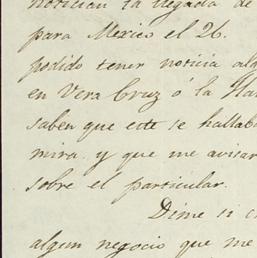 notician la llegada de
para Mexico el 26.
podido tener noticia alg
en Vera Cruz ó la Ha
saben que este se hallab
mira y que me avisar
sobre el particular.
Dime si c
algun negocio que me